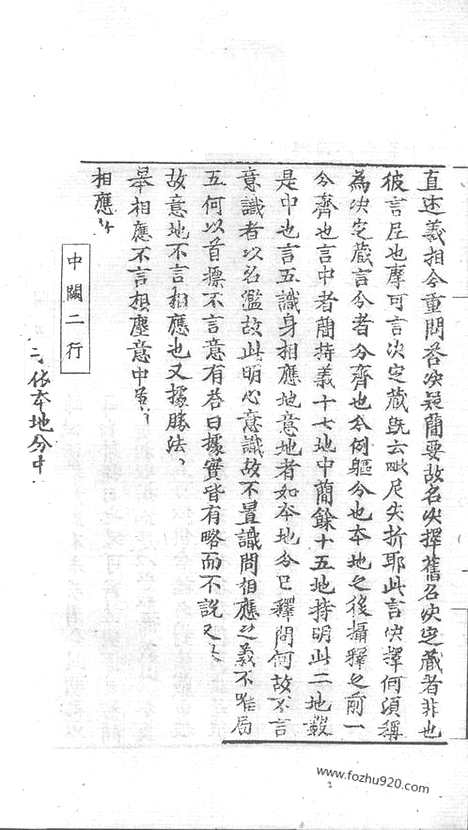 直述義相今重問荅决疑簡要故名决擇舊名决定蔵者非也
彼言尼也摩可言决定蔵旣云毗尼失折耶此言决擇何須稱
為决定蔵言分者分齊也本例軀分也本地之後攝釋之前一
分齊也言中者簡持義十七地中簡餘十五地持明此二地蔵
是中也言五識身相應地意地者如本地分已釋問何故不言
意識者以名濫故此明心意識故不置識問相應之義不唯局
五何以首摽不言意有荅曰據實皆有略而不說又
故意地不言相應也又據勝法
舉相應不言損塵意中
相應
中闕二行
依本地分中
www.fozhu920.com